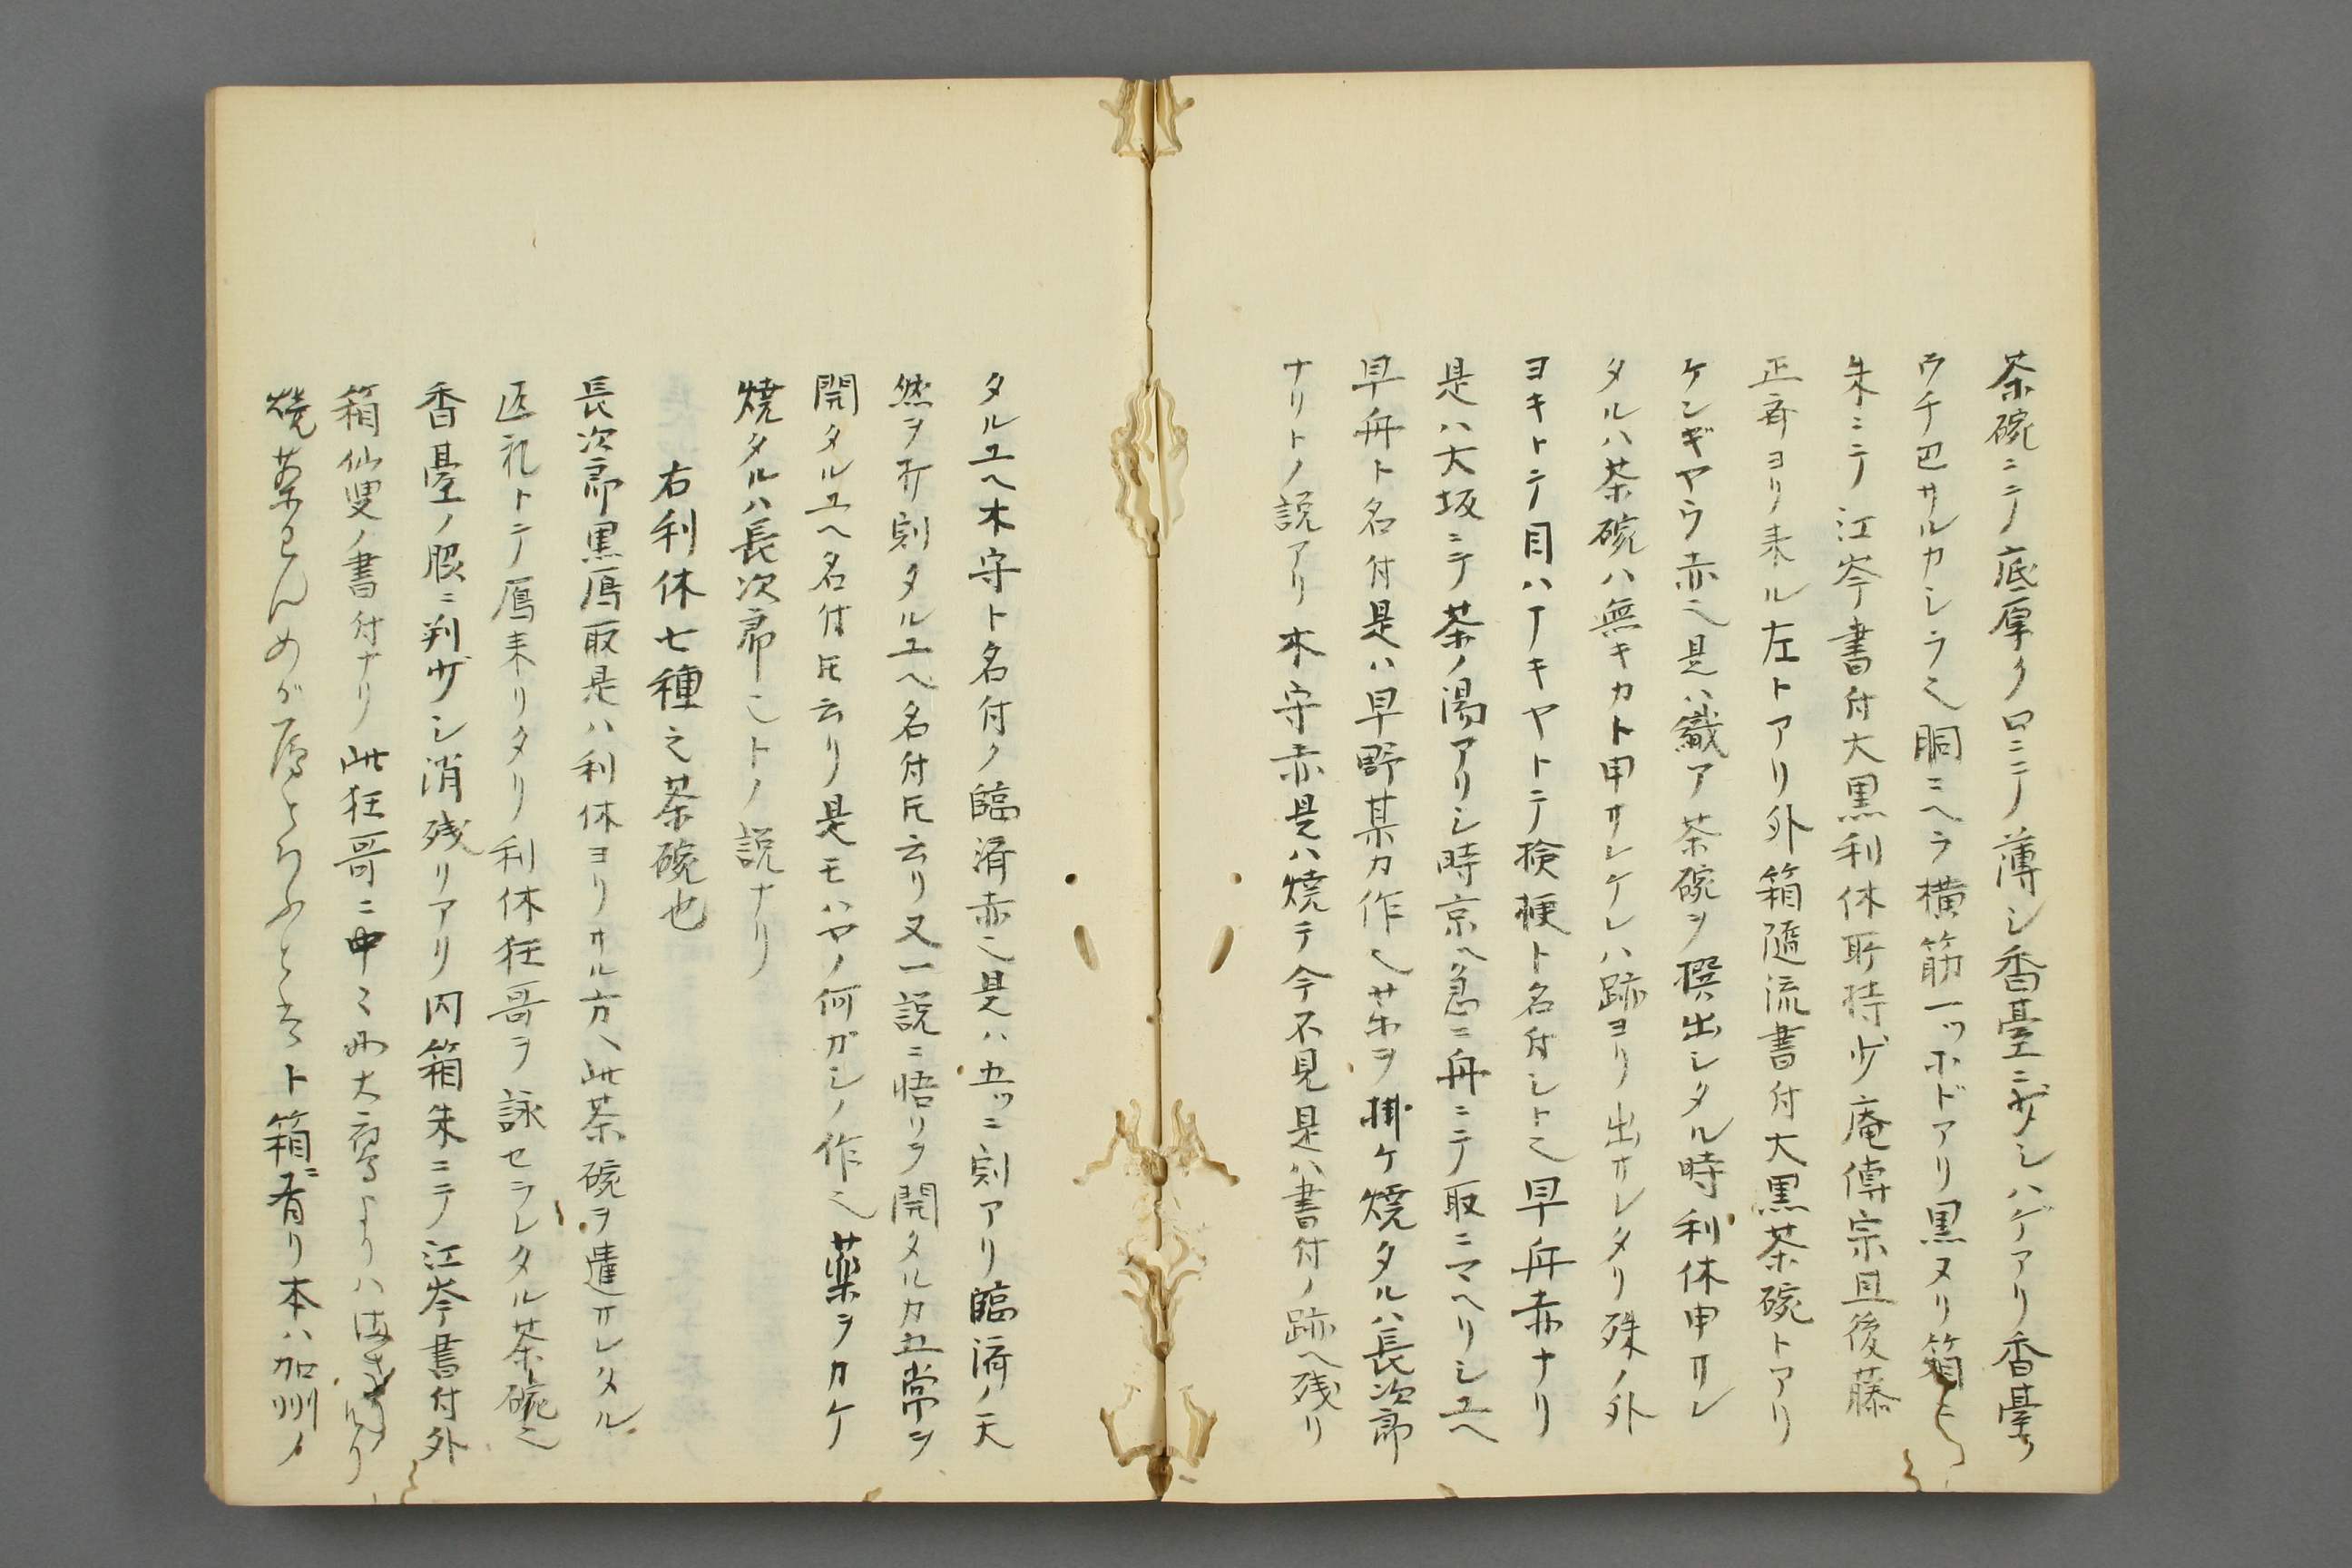 茶碗ニテ底厚ク口ニテ薄シ香臺ニザシハゲアリ香臺
ウチ巴サルカシラ也胴ニヘラ横筋一ッホドアリ黒ヌリ箱
朱ニテ江岑書付大黒利休所持少庵傳宗旦後藤
正斎ヨリ来ル左トアリ外箱随流書付大黒茶碗トアリ
ケンギヤウ赤也是ハ織ア茶碗ヲ撰出シタル時利休申サレ
タルハ茶碗ハ無キカト申サレケレハ跡ヨリ出サレタリ殊ノ外
ヨキトテ目ハアキヤトテ検梗ト名付シト也早舟赤ナリ
是ハ大坂ニテ茶ノ湯アリシ時京ヘ急ニ舟ニテ取ニマヘリシユヘ
早舟ト名付是ハ早野某カ作也薬ヲ掛ケ焼タルハ長次郎
ナリトノ説アリ木守赤是ハ焼テ今不見是ハ書付ノ跡ヘ残リ
タルユヘ木守ト名付ク臨済赤也是ハ五ッニ刻アリ臨済ノ天
然ヲ刻タルユヘ名付トモ云リ又一説ニ悟リヲ開タルカ五常ヲ
開タルユヘ名付トモ云リ是モハヤノ何ガシノ作也薬ヲカケ
焼タルハ長次郎也トノ説ナリ
右利休七種之茶碗也
長次郎黒鴈取是ハ利休ヨリサル方ヘ此茶碗ヲ遣サレタル
返礼トテ鴈来リタリ利休狂哥ヲ詠セラレタル茶碗也
香臺ノ脇ニ判サシ消残リアリ内箱朱ニテ江岑書付外
箱仙叟ノ書付ナリ此狂哥ニ申大鷹よりハ
焼茶わんめが鴈とらふときくト箱ニ有リ本ハ加州ノ